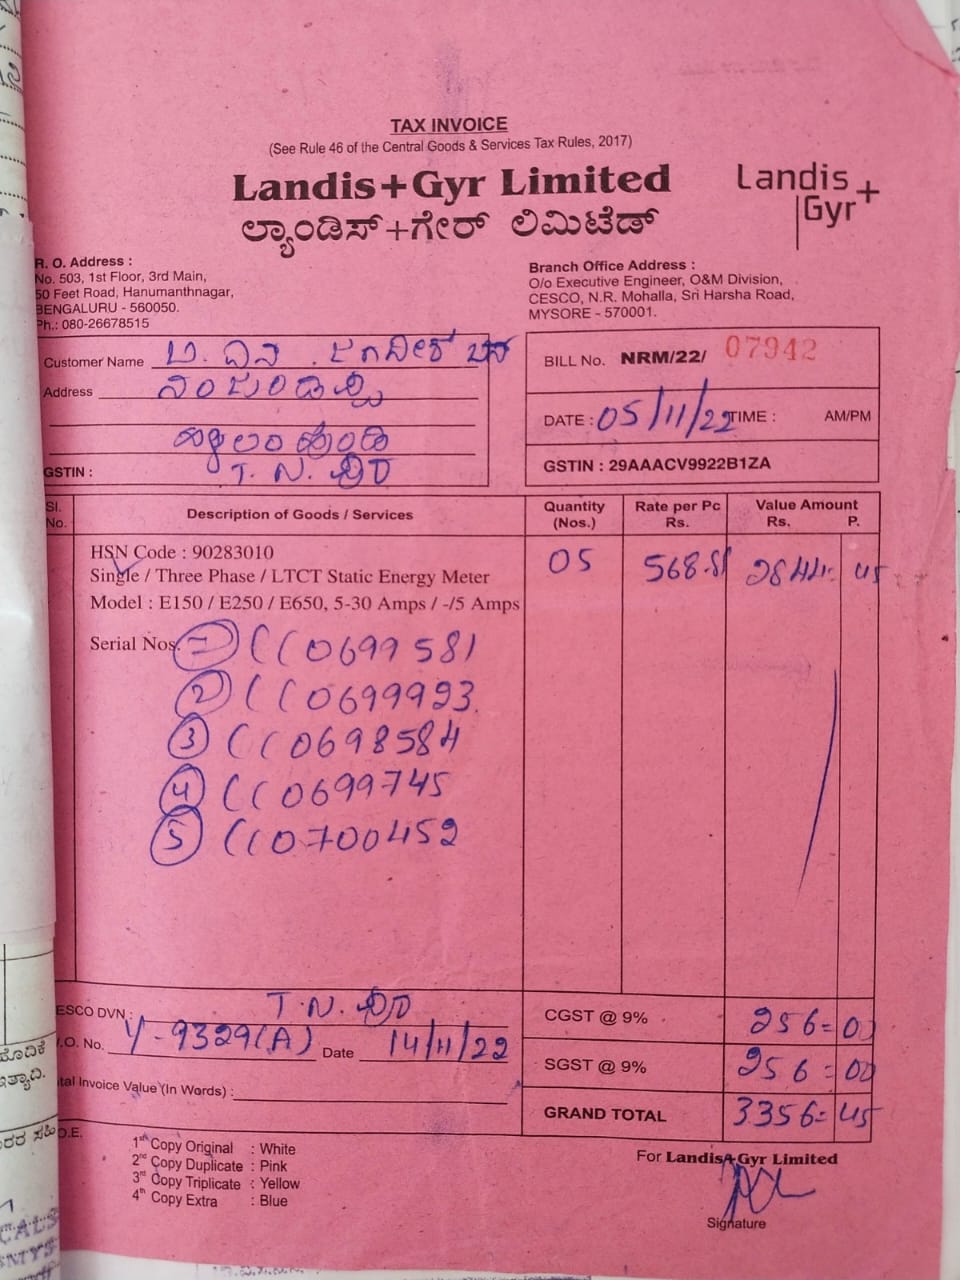 TAX INVOICE
(See Rule 46 of the Central Goods & Services Tax Rules, 2017)
Landis+Gyr Limited
ಲ್ಯಾಂಡಿಸ್+ಗೇರ್ ಲಿಮಿಟೆಡ್
Landis
Gyr+
R. O. Address :
No. 503, 1st Floor, 3rd Main,
50 Feet Road, Hanumanthnagar,
BENGALURU - 560050.
Ph.: 080-26678515
Branch Office Address :
O/o Executive Engineer, O&M Division,
CESCO, N.R. Mohalla, Sri Harsha Road,
MYSORE - 570001.
Customer Name
Address
GSTIN : T. ನ.
BILL No. NRM/22/ 07942
DATE : 05/11/22 TIME : AM/PM
GSTIN : 29AAACV9922B1ZA
Sl. No. Description of Goods / Services Quantity (Nos.) Rate per Pc Rs. Value Amount Rs. P.
HSN Code : 90283010 05 568.81 2844= 45
Single / Three Phase / LTCT Static Energy Meter
Model : E150 / E250 / E650, 5-30 Amps / -/5 Amps
Serial Nos. 1 CC0699581
2 CC0699923
3 CC0698584
4 CC0699745
5 CC0700452
ESCO DVN : T. ನ.
.O. No. Y-9329(A) Date 14/11/22
tal Invoice Value (In Words) :
CGST @ 9% 256= 00
SGST @ 9% 256= 00
GRAND TOTAL 3356= 45
O.E.
1st Copy Original : White
2nd Copy Duplicate : Pink
3rd Copy Triplicate : Yellow
4th Copy Extra : Blue
For Landis+Gyr Limited
Signature